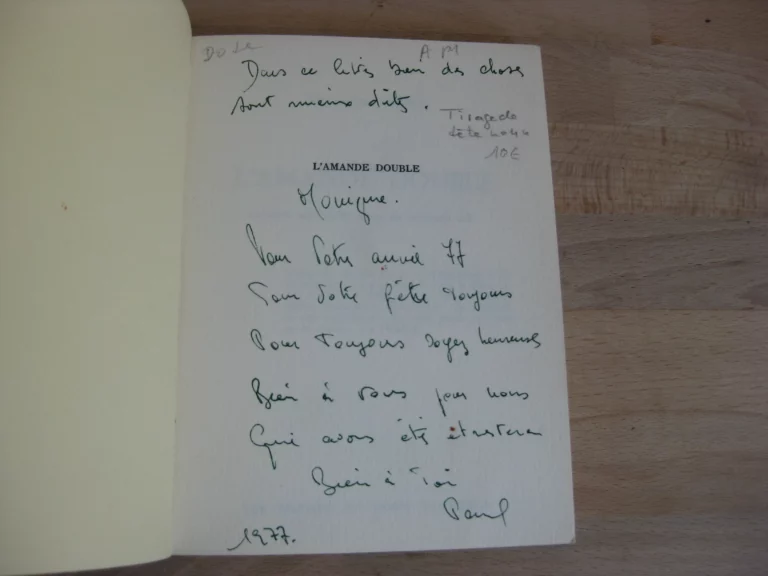 A M
Dans ce livre bien des choses
sont mieux dites.
Tirage de
tête
10€
L'AMANDE DOUBLE
Monique.
Pour votre année 77
Pour votre fête toujours
Pour toujours soyez heureuse
Bien à vous pour nous
Qui avons été et
Bien à Toi
Paul
1977.